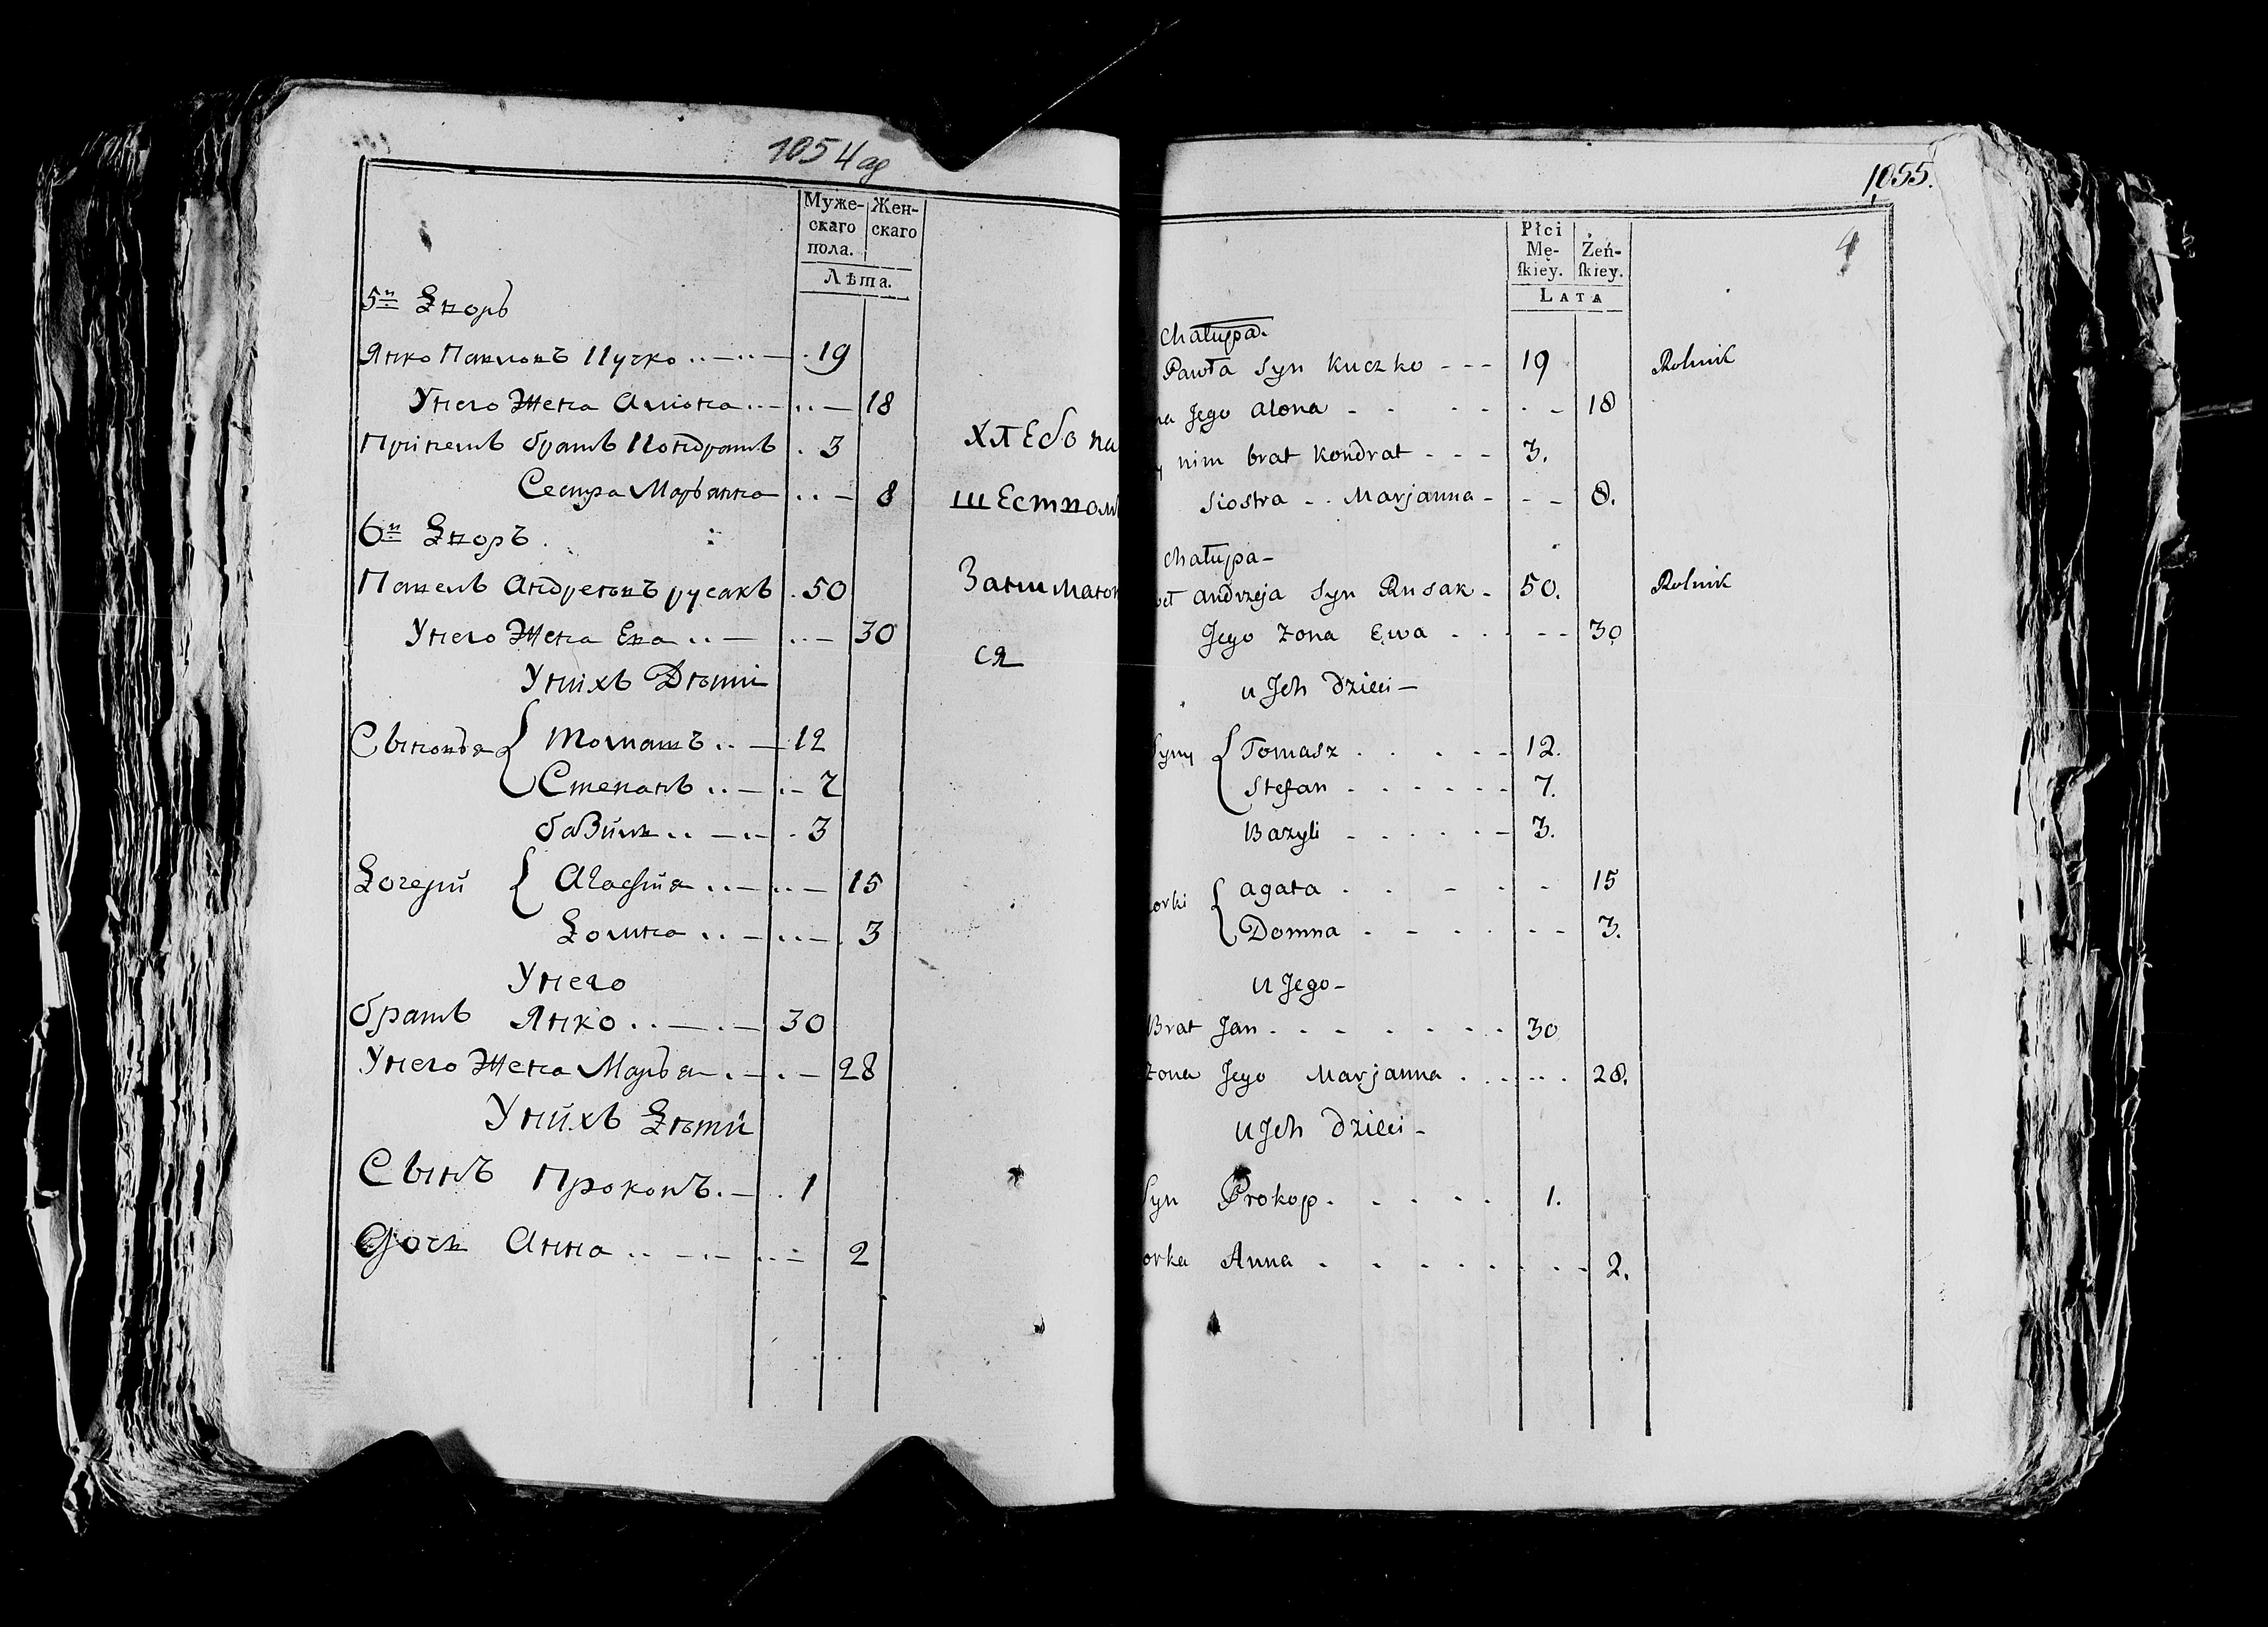 1054 об
Муже-
скаго
пола.
Жен-
скаго
Лѣта.
5й Дворъ
Янко Павловъ Кучко 19
У него Жена Алiона 18
При немъ братъ Кондратъ 3
Сестра Марьянна 8
6й Дворъ
Павелъ Андреевъ русакъ 50
У него Жена Ева 30
У нихъ Дѣти
Сыновья { Томашъ 12
Степанъ 7
базиль 3
Дочери { Агафия 15
Домна 3
У него
братъ Янко 30
У него Жена Марья 28
У нихъ Дѣти
Сынъ Прокопъ 1
Дочь Анна 2
Хлебопа
шествомъ
Занимают
ся
1055.
4
Płci
Mę-
skiey.
Żeń-
skiey.
LATA
Chałupa.
Pawła Syn Kuczko 19 Rolnik
na Jego Alona 18
nim brat Kondrat 3.
Siostra Marjanna 8.
Chałupa
Andrzeja Syn Rusak 50. Rolnik
Jego Żona Ewa 30
u Jch dzieci
Syny { Tomasz 12.
Stefan 7.
Bazyli 3.
orki { Agata 15
Domna 3.
u Jego
Brat Jan 30
Żona Jego Marjanna 28.
u Jch dzieci
Syn Prokop 1.
orka Anna 2.